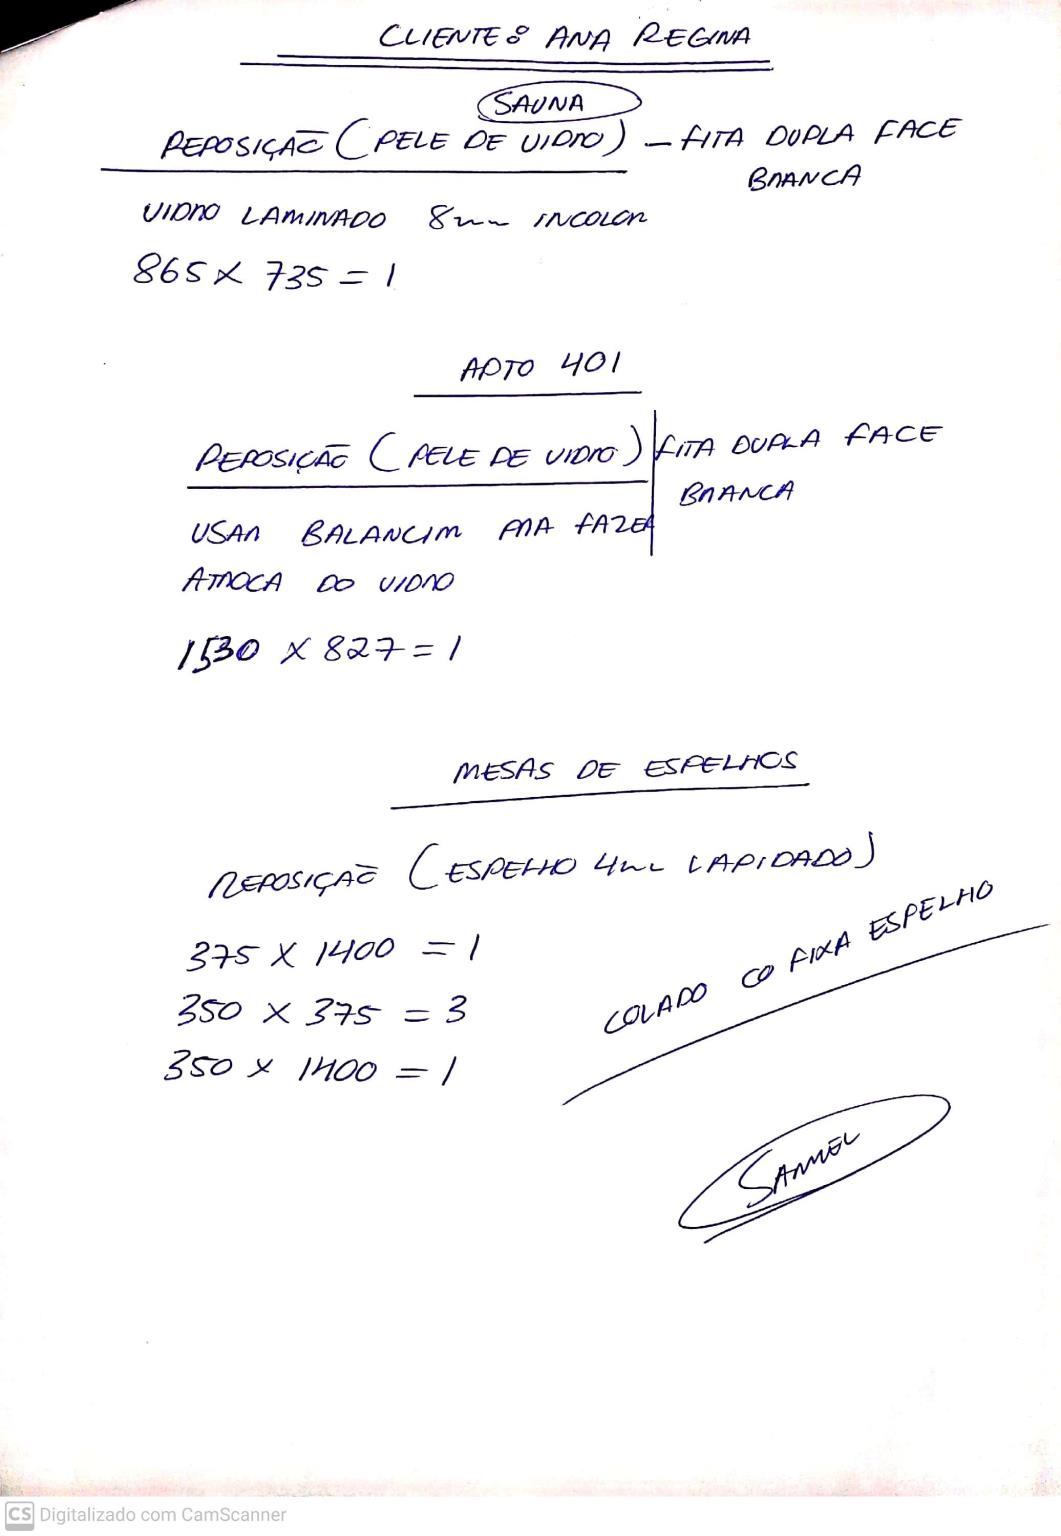 CLIENTE: ANA REGINA
SAUNA
REPOSIÇÃO (PELE DE VIDRO) - FITA DUPLA FACE
BRANCA
VIDRO LAMINADO 8mm INCOLOR
865 X 735 = 1
APTO 401
REPOSIÇÃO (PELE DE VIDRO) FITA DUPLA FACE
BRANCA
USAR BALANCIM PRA FAZER
A TROCA DO VIDRO
1530 X 827 = 1
MESAS DE ESPELHOS
REPOSIÇÃO (ESPELHO 4mm LAPIDADO)
375 X 1400 = 1
350 X 375 = 3
350 X 1400 = 1
COLADO CO FIXA ESPELHO
SAMUEL
CS Digitalizado com CamScanner